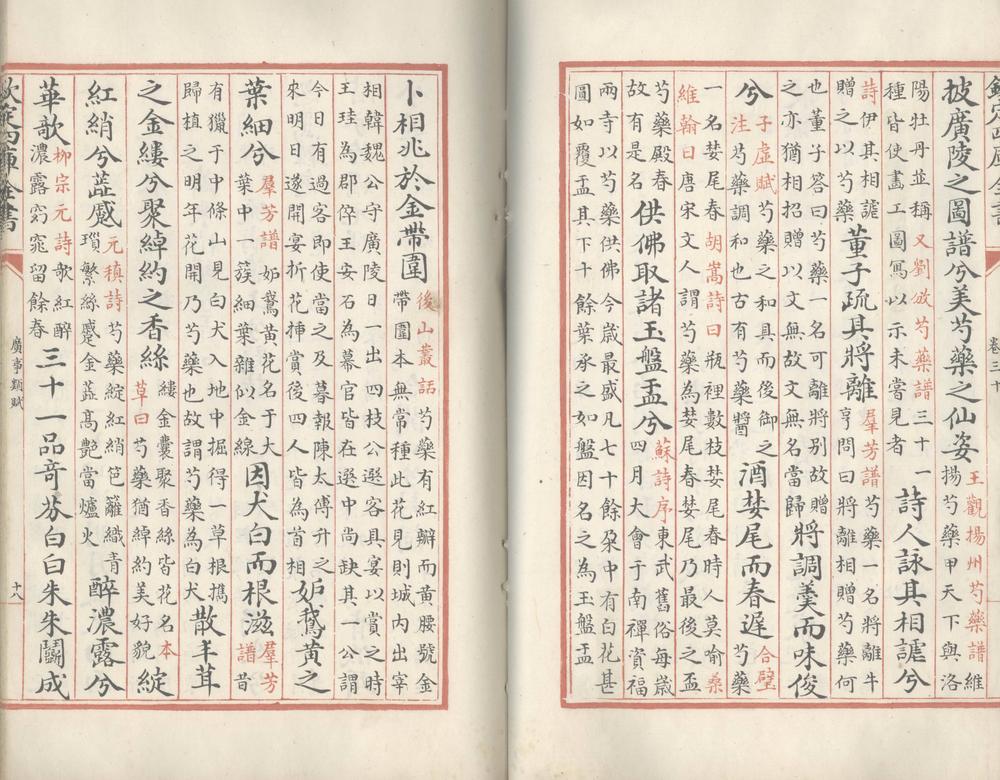 披廣陵之圖譜兮美芍藥之仙姿
王觀揚州芍藥譜維
揚芍藥甲天下與洛
陽牡丹並稱又劉攽芍藥譜三十一
種皆使畫工圖寫以示未嘗見者
詩人詠其相謔兮
詩伊其相謔
贈之以芍藥
董子疏其將離
羣芳譜芍藥一名將離牛
亨問曰將離相贈芍藥何
也董子答曰芍藥一名可離將别故贈
之亦猶相招贈以文無故文無名當歸
將調羹而味俊
兮
子虛賦芍藥之和具而後御之
注芍藥調和也古有芍藥醬
酒婪尾而春遲
合璧
芍藥
一名婪尾春胡嵩詩曰瓶裡數枝婪尾春時人莫喻桑
維翰曰唐宋文人謂芍藥為婪尾春婪尾乃最後之盃
芍藥殿春
故有是名
供佛取諸玉盤盂兮
蘇詩序東武舊俗每歲
四月大會于南禪資福
兩寺以芍藥供佛今歲最盛凡七十餘朶中有白花甚
圓如覆盂其下十餘葉承之如盤因名之為玉盤盂
卜相兆於金帶圍
後山叢話芍藥有紅瓣而黃腰號金
帶圍本無常種此花見則城内出宰
相韓魏公守廣陵日一出四枝公選客具宴以賞之時
王珪為郡倅王安石為幕官皆在選中尚缺其一公謂
今日有過客即使當之及暮報陳太傅升之
來明日遂開宴折花揷賞後四人皆為首相
妒鵝黃之
葉細兮
羣芳譜妒鵞黃花名于大
葉中一簇細葉雜似金線
因犬白而根滋
羣芳
譜昔
有獵于中條山見白犬入地中掘得一草根㩦
歸植之明年花開乃芍藥也故謂芍藥為白犬
散羊茸
之金縷兮聚綽約之香絲
縷金囊聚香絲皆花名本
草曰芍藥猶綽約美好貌
綻
紅綃兮蕋蹙
元稹詩芍藥綻紅綃笆籬織青
瑣繁絲蹙金蕋髙艶當爐火
醉濃露兮
華歌
柳宗元詩歌紅醉
濃露窈窕留餘春
三十一品竒芬白白朱朱鬭成
欽定四庫全書
廣事類賦
十八